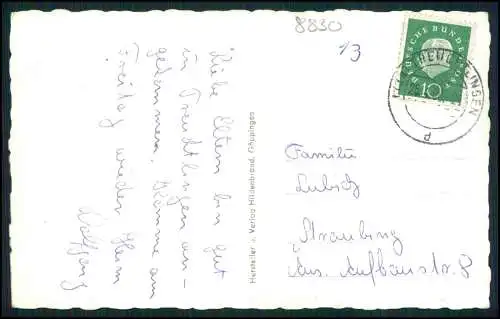 8830
13
DEUTSCHE BUNDESPOST
10
TREUCHTLINGEN
d
Liebe Eltern bin gut
in Treuchtlingen an-
gekommen. Komme am
Freitag wieder Heim
Wolfgang
Hersteller u. Verlag Hildenbrand, Göppingen
Familie
Lubich
Straubing
Aus. Aufbaustr. 8